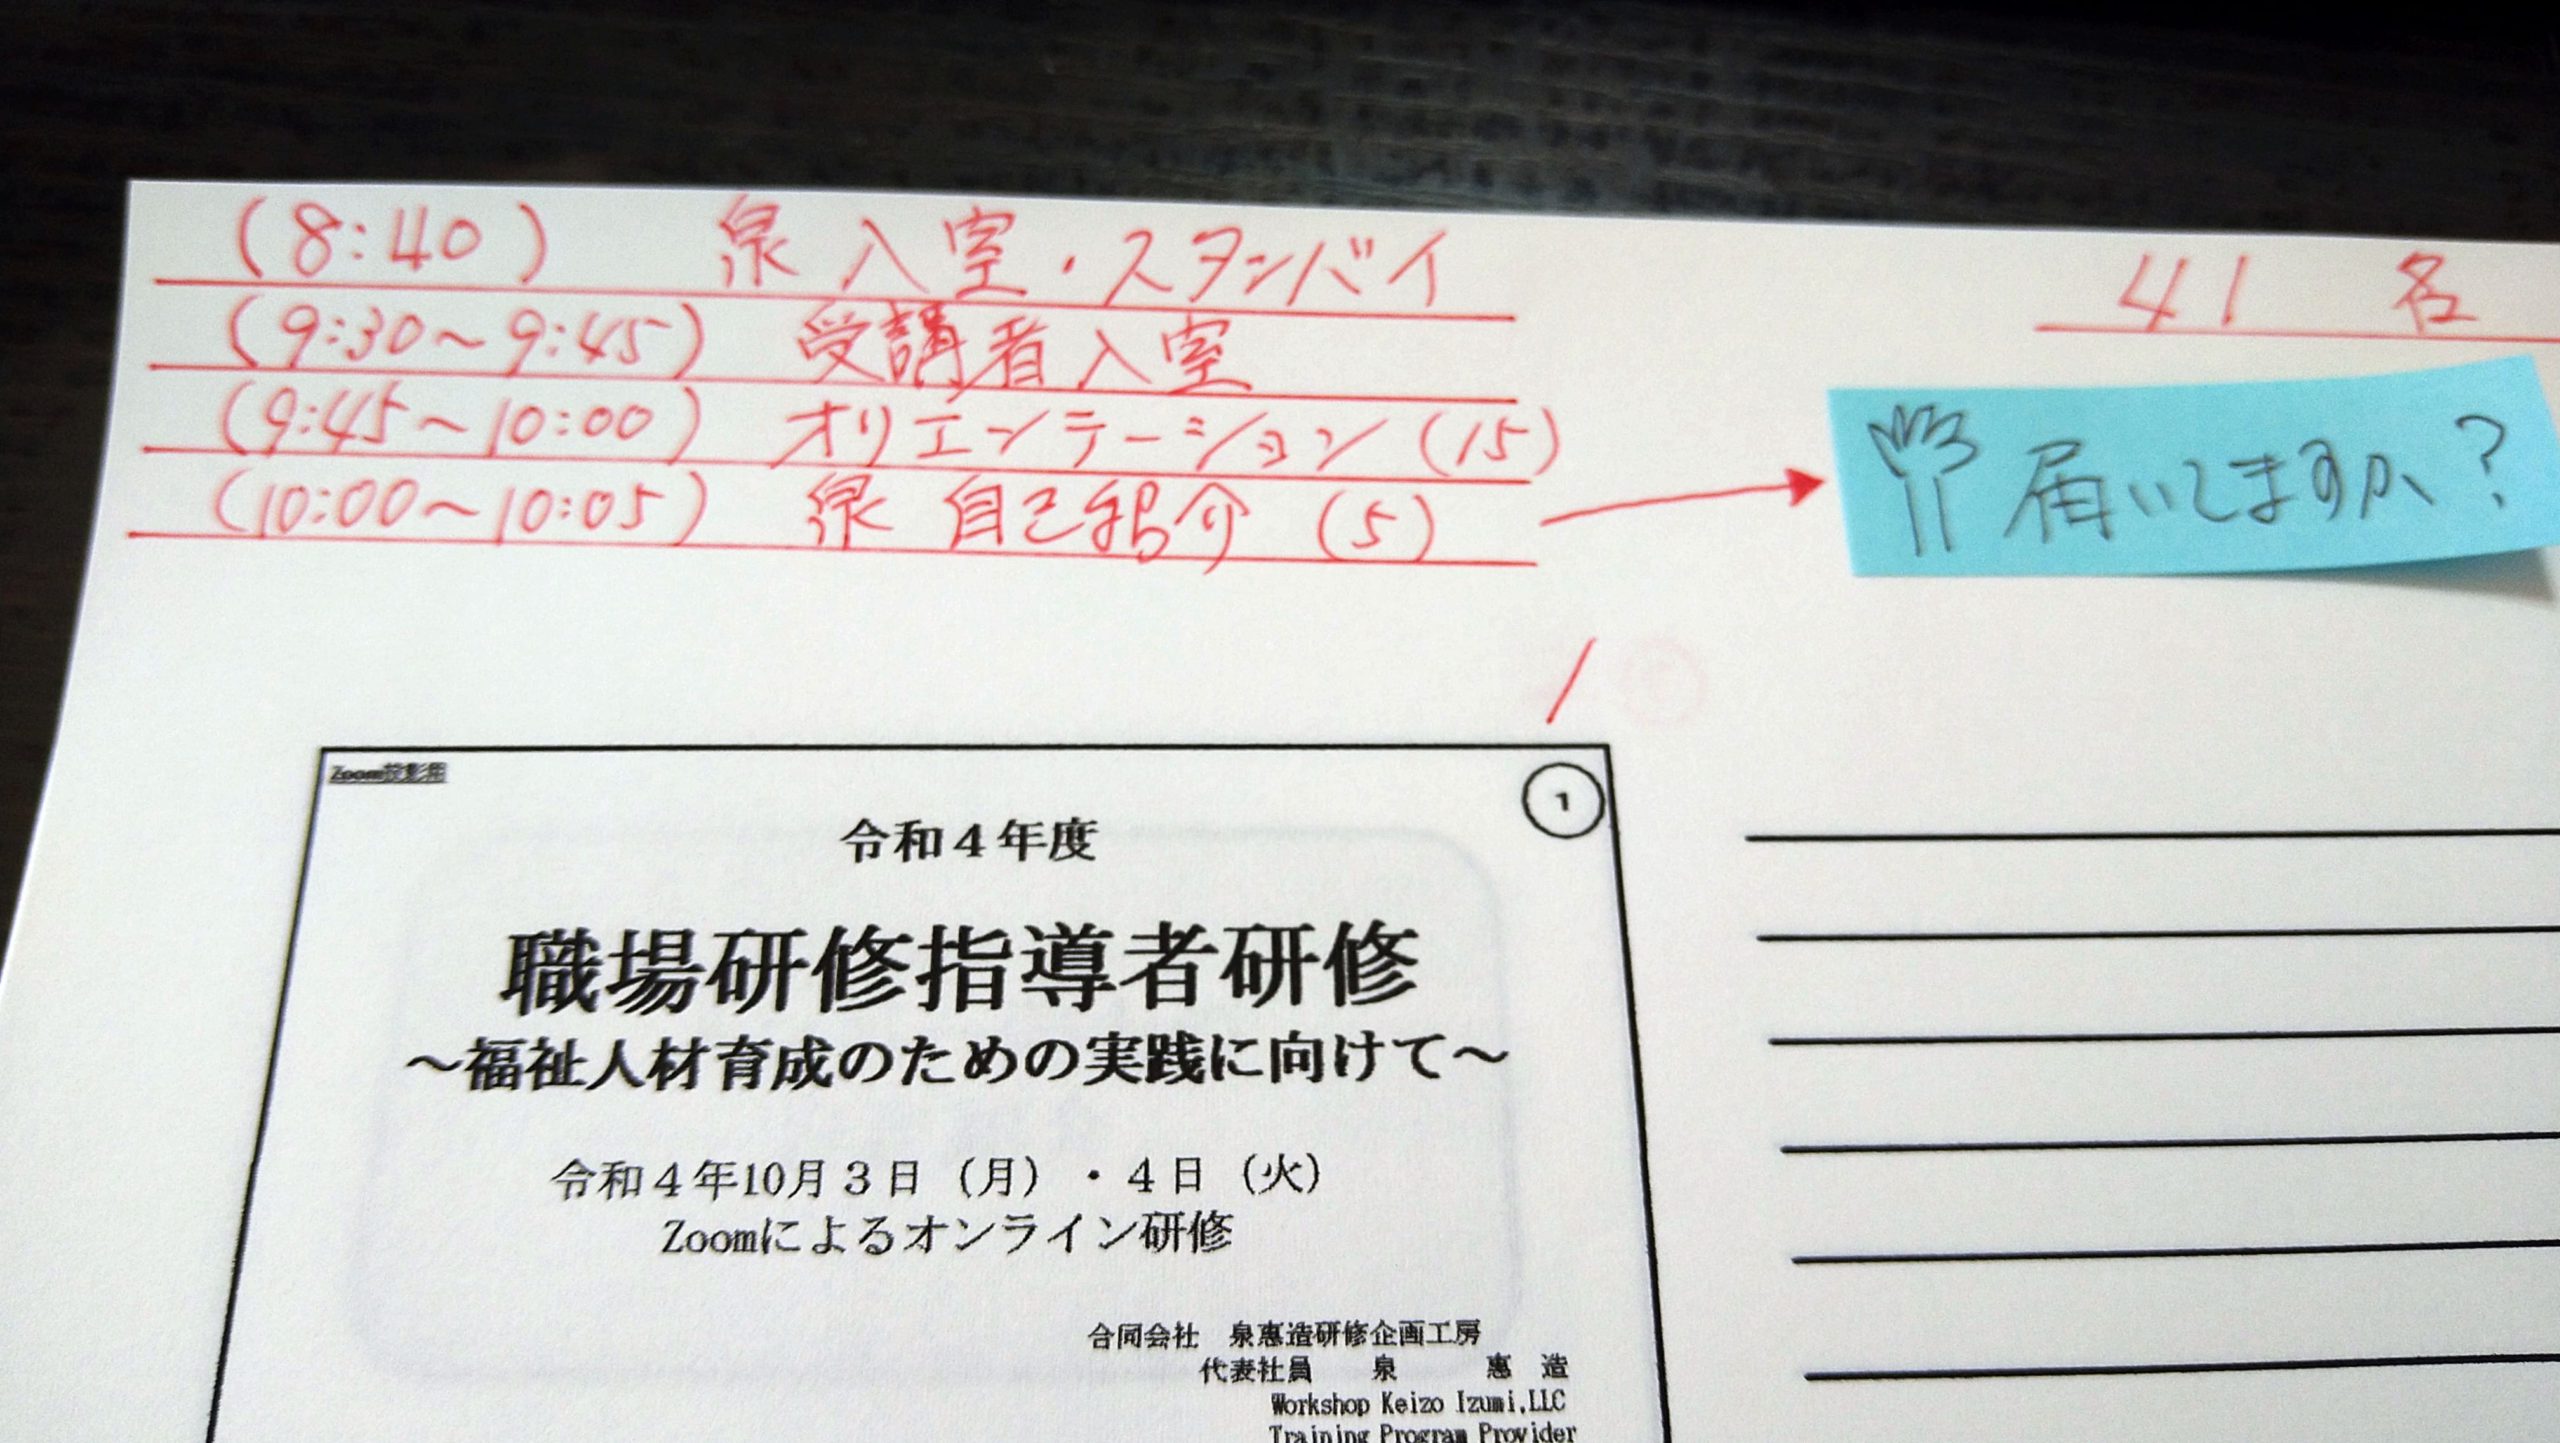 (8:40) 泉 入室・スタンバイ
41 名
(9:30〜9:45) 受講者入室
(9:45〜10:00) オリエンテーション (15)
(10:00〜10:05) 泉 自己紹介 (5)
届いてますか?
1
Zoom投影用
1
令和4年度
職場研修指導者研修
〜福祉人材育成のための実践に向けて〜
令和4年10月3日(月)・4日(火)
Zoomによるオンライン研修
合同会社 泉惠造研修企画工房
代表社員 泉 惠造
Workshop Keizo Izumi,LLC
Training Program Provider